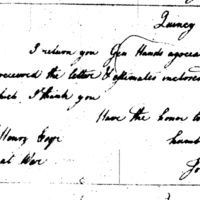 Quincy
I return you Gen Hands agreea
received the letter & estimates inclosed
which I thank you
Have the honor to
Henry Esqr
humb
at War
Jo